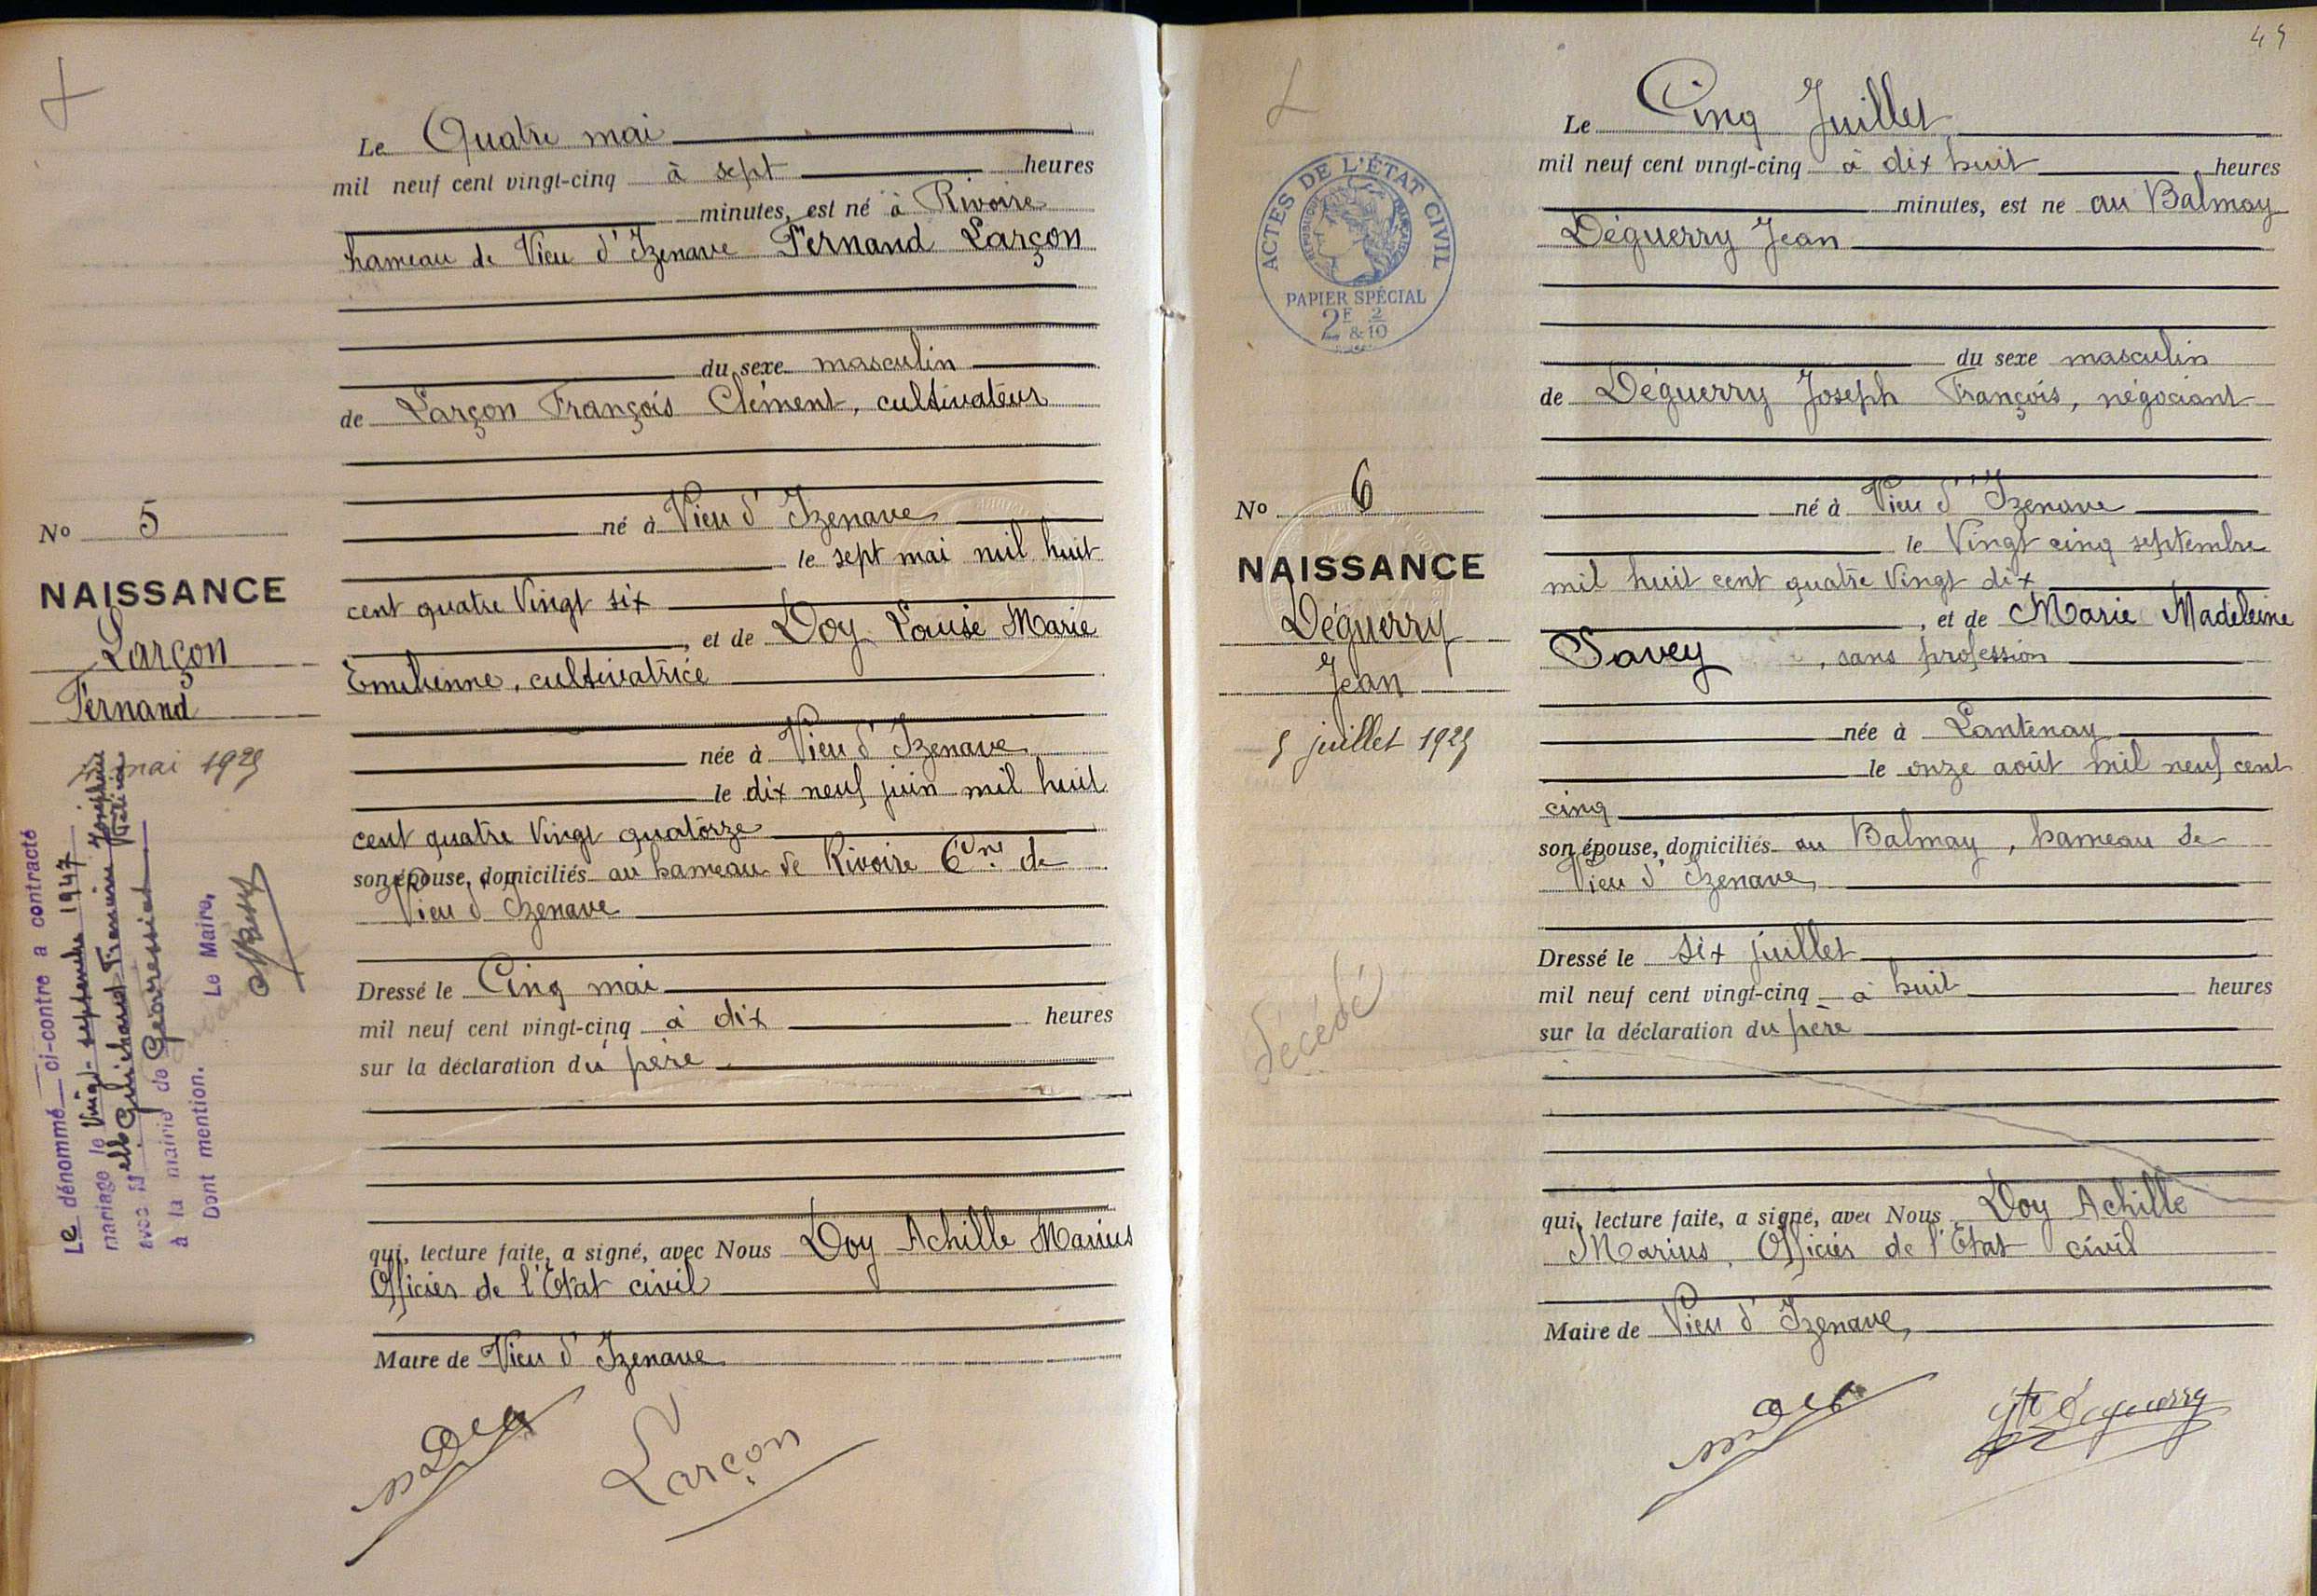 Le Quatre mai
mil neuf cent vingt-cinq à sept heures
minutes, est né à Rivoire
hameau de Vieu d'Izenave Fernand Larçon
du sexe masculin
de Larçon François Clément, cultivateur
né à Vieu d'Izenave
le sept mai mil huit
cent quatre vingt six
, et de Doy Louise Marie
Emilienne, cultivatrice
née à Vieu d'Izenave
le dix neuf juin mil huit
cent quatre vingt quatorze
son épouse, domiciliés au hameau de Rivoire Cne de
Vieu d'Izenave
Dressé le Cinq mai
mil neuf cent vingt-cinq à dix heures
sur la déclaration du père
qui, lecture faite, a signé, avec Nous Doy Achille Marius
Officier de l'Etat civil
Maire de Vieu d'Izenave
Larçon
No 5
NAISSANCE
Larçon
Fernand
mai 1925
Le dénommé ci-contre a contracté
mariage le Vingt septembre 1947
avec Melle Guichard Joséphine
à la mairie de
Dont mention. Le Maire,
45
ACTES DE L'ÉTAT CIVIL
PAPIER SPÉCIAL
2F 2
&10
No 6
NAISSANCE
Déguerry
Jean
5 juillet 1925
décédé
Le Cinq Juillet
mil neuf cent vingt-cinq à dix huit heures
minutes, est né au Balmay
Déguerry Jean
du sexe masculin
de Déguerry Joseph François, négociant
né à Vieu d'Izenave
le Vingt cinq septembre
mil huit cent quatre vingt dix
, et de Marie Madeleine
Savey, sans profession
née à Lantenay
le onze août mil neuf cent
cinq
son épouse, domiciliés au Balmay, hameau de
Vieu d'Izenave
Dressé le six juillet
mil neuf cent vingt-cinq à huit heures
sur la déclaration du père
qui, lecture faite, a signé, avec Nous Doy Achille
Marius, Officier de l'Etat civil
Maire de Vieu d'Izenave
Deguerry